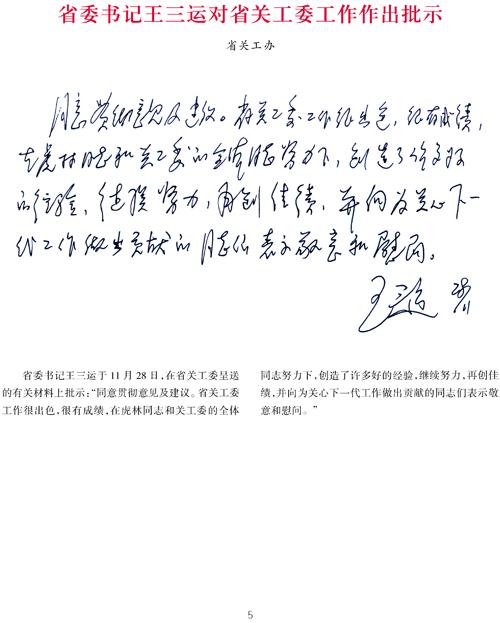 省委书记王三运对省关工委工作作出批示
省关工办
同意贯彻意见及建议。省关工委工作很出色，很有成绩，
在虎林同志和关工委的全体同志努力下，创造了许多好
的经验，继续努力，再创佳绩，并向为关心下一
代工作做出贡献的同志们表示敬意和慰问。
王三运
省委书记王三运于 11 月 28 日，在省关工委呈送
的有关材料上批示：“同意贯彻意见及建议。省关工委
工作很出色，很有成绩，在虎林同志和关工委的全体
同志努力下，创造了许多好的经验，继续努力，再创佳
绩，并向为关心下一代工作做出贡献的同志们表示敬
意和慰问。”
5